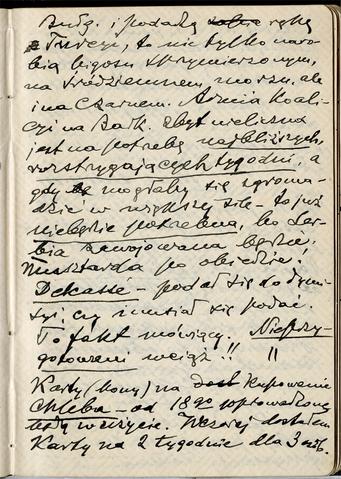 Bułg. i podadzą sobie rękę
z Turcją, to nie tylko naro-
bią bigosu sprzymierzonym,
na Śródziemnem morzu, ale
i na Czarnem. Armia Koali-
cyi na Bałk. zbyt nieliczna
jest na potrzeby najbliższych,
rozstrzygających tygodni, a
gdy mogłaby się zgroma-
dzić w większej sile – to już
niebędzie potrzebna, bo Ser-
bia zawojowana będzie.
Musztarda po obiedzie!
Delcassé – podał się do dymi-
syi, czy musiał się podać.
To fakt mówiący. Nieprzy-
gotowani wciąż!!
Karty (bony) na kupowanie
chleba – od 18go wprowadzone
będą w życie. Wczoraj dostałem
Karty na 2 tygodnie dla 3 osób.